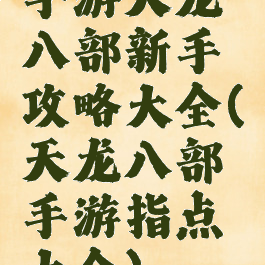 手游天龙
八部新手
攻略大全(
天龙八部
手游指点
大全)